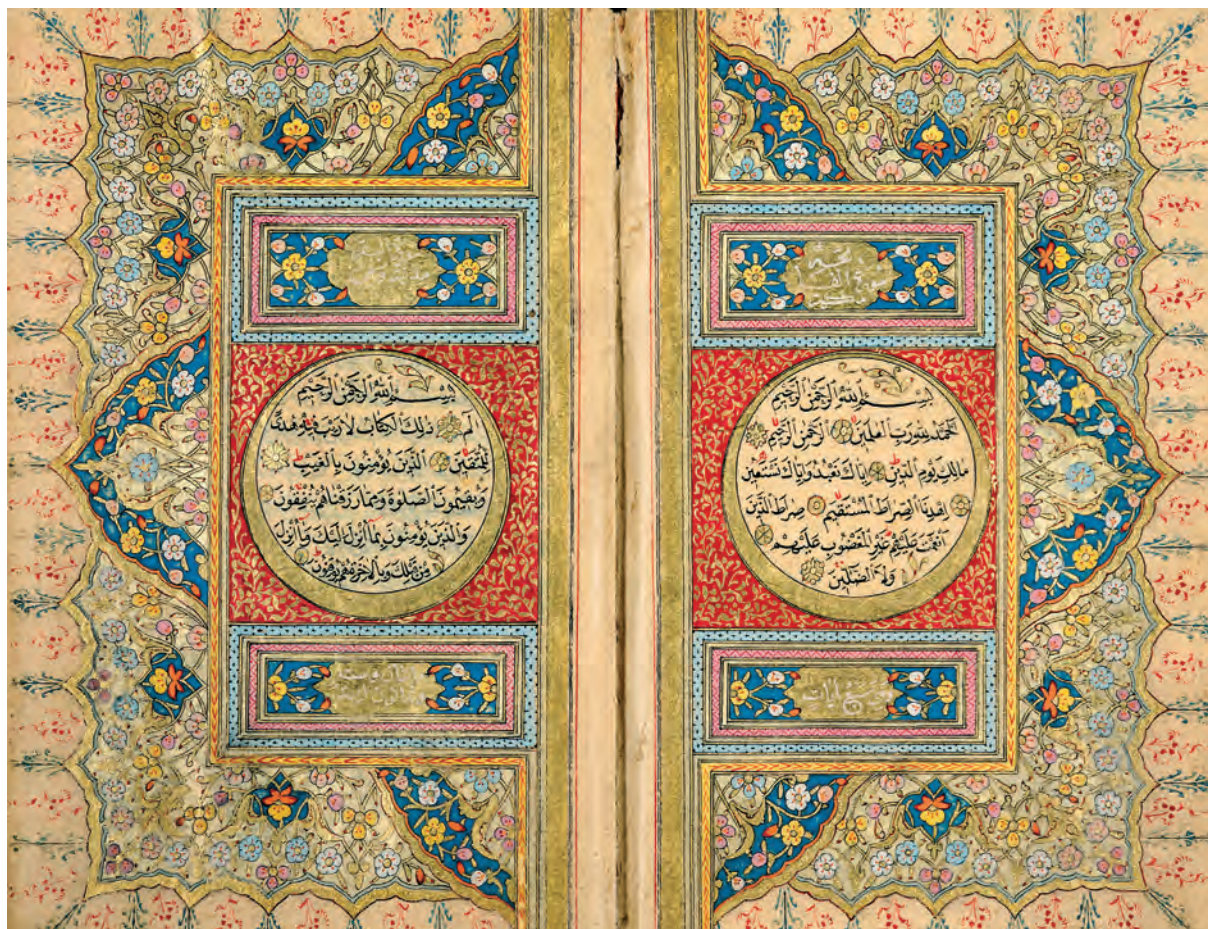 بِسْمِ اللّٰهِ الرَّحْمٰنِ الرَّحِيمِ
اَلْحَمْدُ لِلّٰهِ رَبِّ الْعٰلَمِينَ الرَّحْمٰنِ الرَّحِيمِ
مَالِكِ يَوْمِ الدِّينِ اِيَّاكَ نَعْبُدُ وَاِيَّاكَ نَسْتَعِينُ
اِهْدِنَا الصِّرَاطَ الْمُسْتَقِيمَ صِرَاطَ الَّذِينَ
اَنْعَمْتَ عَلَيْهِمْ غَيْرِ الْمَغْضُوبِ عَلَيْهِمْ
وَلَا الضَّالِّينَ
بِسْمِ اللّٰهِ الرَّحْمٰنِ الرَّحِيمِ
الٓمٓ ذٰلِكَ الْكِتَابُ لَا رَيْبَ فِيهِ هُدًى
لِلْمُتَّقِينَ الَّذِينَ يُؤْمِنُونَ بِالْغَيْبِ
وَيُقِيمُونَ الصَّلٰوةَ وَمِمَّا رَزَقْنَاهُمْ يُنْفِقُونَ
وَالَّذِينَ يُؤْمِنُونَ بِمَا اُنْزِلَ اِلَيْكَ وَمَا اُنْزِلَ
مِنْ قَبْلِكَ وَبِالْاٰخِرَةِ هُمْ يُوقِنُونَ